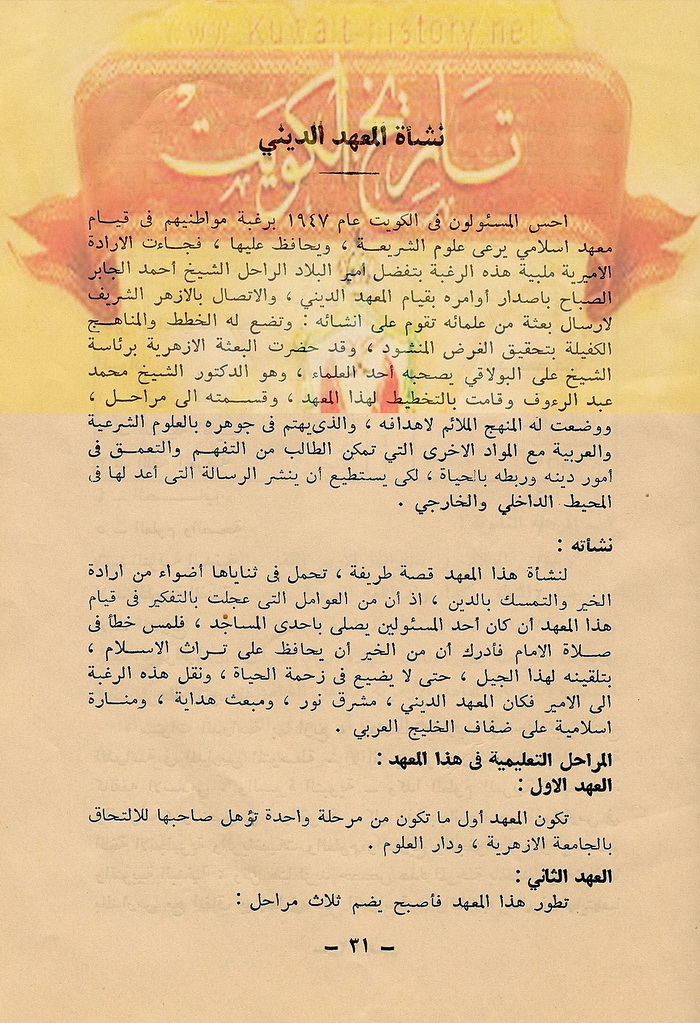 www.Kuwait-history.net
تاريخ الكويت
نشأة المعهد الديني
احس المسئولون فى الكويت عام ١٩٤٧ برغبة مواطنيهم فى قيام
معهد اسلامي يرعى علوم الشريعة ، ويحافظ عليها ، فجاءت الارادة
الاميرية ملبية هذه الرغبة بتفضل امير البلاد الراحل الشيخ أحمد الجابر
الصباح باصدار أوامره بقيام المعهد الديني ، والاتصال بالازهر الشريف
لارسال بعثة من علمائه تقوم على انشائه : وتضع له الخطط والمناهج
الكفيلة بتحقيق الغرض المنشود ، وقد حضرت البعثة الازهرية برئاسة
الشيخ على البولاقي يصحبه أحد العلماء ، وهو الدكتور الشيخ محمد
عبد الرءوف وقامت بالتخطيط لهذا المعهد ، وقسمته الى مراحل ،
ووضعت له المنهج الملائم لاهدافه ، والذىيهتم فى جوهره بالعلوم الشرعية
والعربية مع المواد الاخرى التي تمكن الطالب من التفهم والتعمق فى
أمور دينه وربطه بالحياة ، لكى يستطيع أن ينشر الرسالة التى أعد لها فى
المحيط الداخلي والخارجي .
نشأته :
لنشأة هذا المعهد قصة طريفة ، تحمل فى ثناياها أضواء من ارادة
الخير والتمسك بالدين ، اذ أن من العوامل التى عجلت بالتفكير فى قيام
هذا المعهد أن كان أحد المسئولين يصلى باحدى المساجد ، فلمس خطأ فى
صلاة الامام فأدرك أن من الخير أن يحافظ على تراث الاسلام ،
بتلقينه لهذا الجيل ، حتى لا يضيع فى زحمة الحياة ، ونقل هذه الرغبة
الى الامير فكان المعهد الديني ، مشرق نور ، ومبعث هداية ، ومنارة
اسلامية على ضفاف الخليج العربي .
المراحل التعليمية فى هذا المعهد :
العهد الاول :
تكون المعهد أول ما تكون من مرحلة واحدة تؤهل صاحبها للالتحاق
بالجامعة الازهرية ، ودار العلوم .
العهد الثاني :
تطور هذا المعهد فأصبح يضم ثلاث مراحل :
– ٣١ –